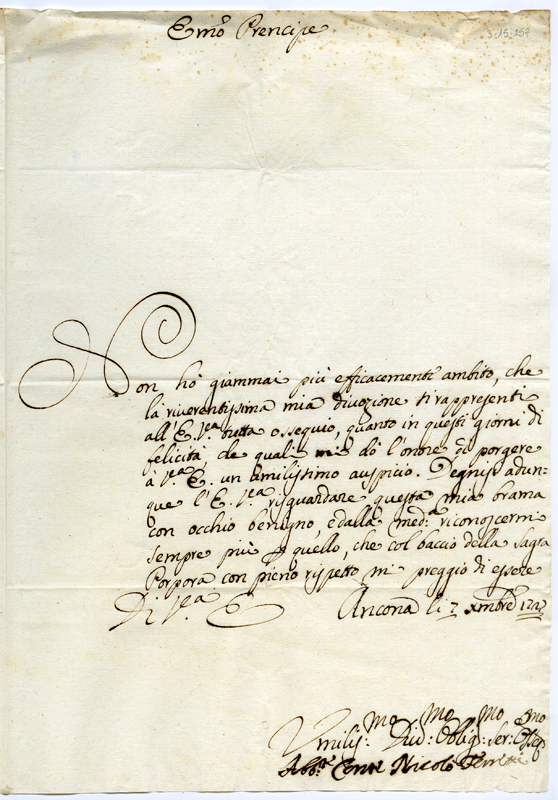 Emo Prencipe
3:15:257
Non hò giammai più efficacemente ambito, che
la riverentissima mia divozione ti rappresenti
all'E. Vra tutta ossequio, quanto in questi giorni di
felicità de quali mi dò l'onore di porgere
a Vra E. un umilissimo auspicio. Degnisi adun=
que l'E. Vra risguardare questa mia brama
con occhio benigno, e dalla med:a riconoscermi
sempre più p quello, che col baccio della Sagra
Porpora con pieno rispetto mi preggio di essere
Di Vra E
Ancona li 7 Xmbre
Umiliss:mo Div:mo Oblig:mo Ser:
Abb:te Conte Nicolo